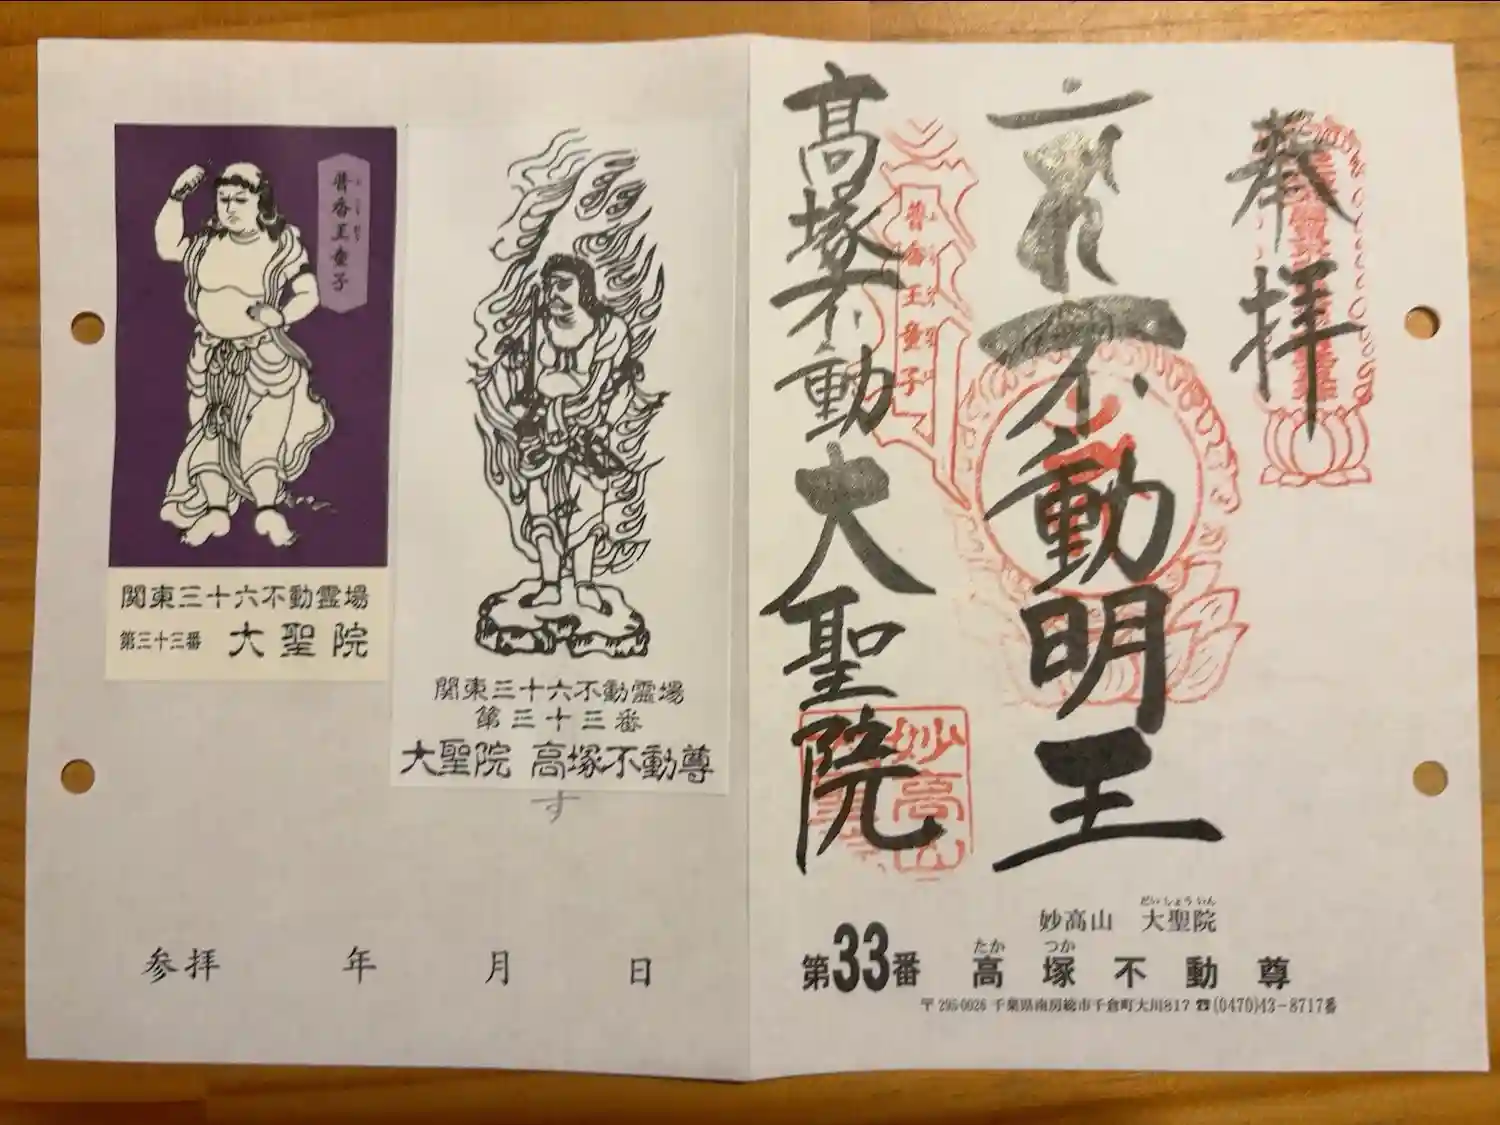 普香王童子
関東三十六不動霊場
第三十三番 大聖院
関東三十六不動霊場
第三十三番
大聖院 高塚不動尊
す
参拝 年 月 日
奉拝
不動明王
高塚不動
大聖院
普香王童子
妙高山
だいしょういん
妙高山 大聖院
たか つか
第33番 高塚不動尊
〒295-0026 千葉県南房総市千倉町大川817 ☎(0470)43-8717番